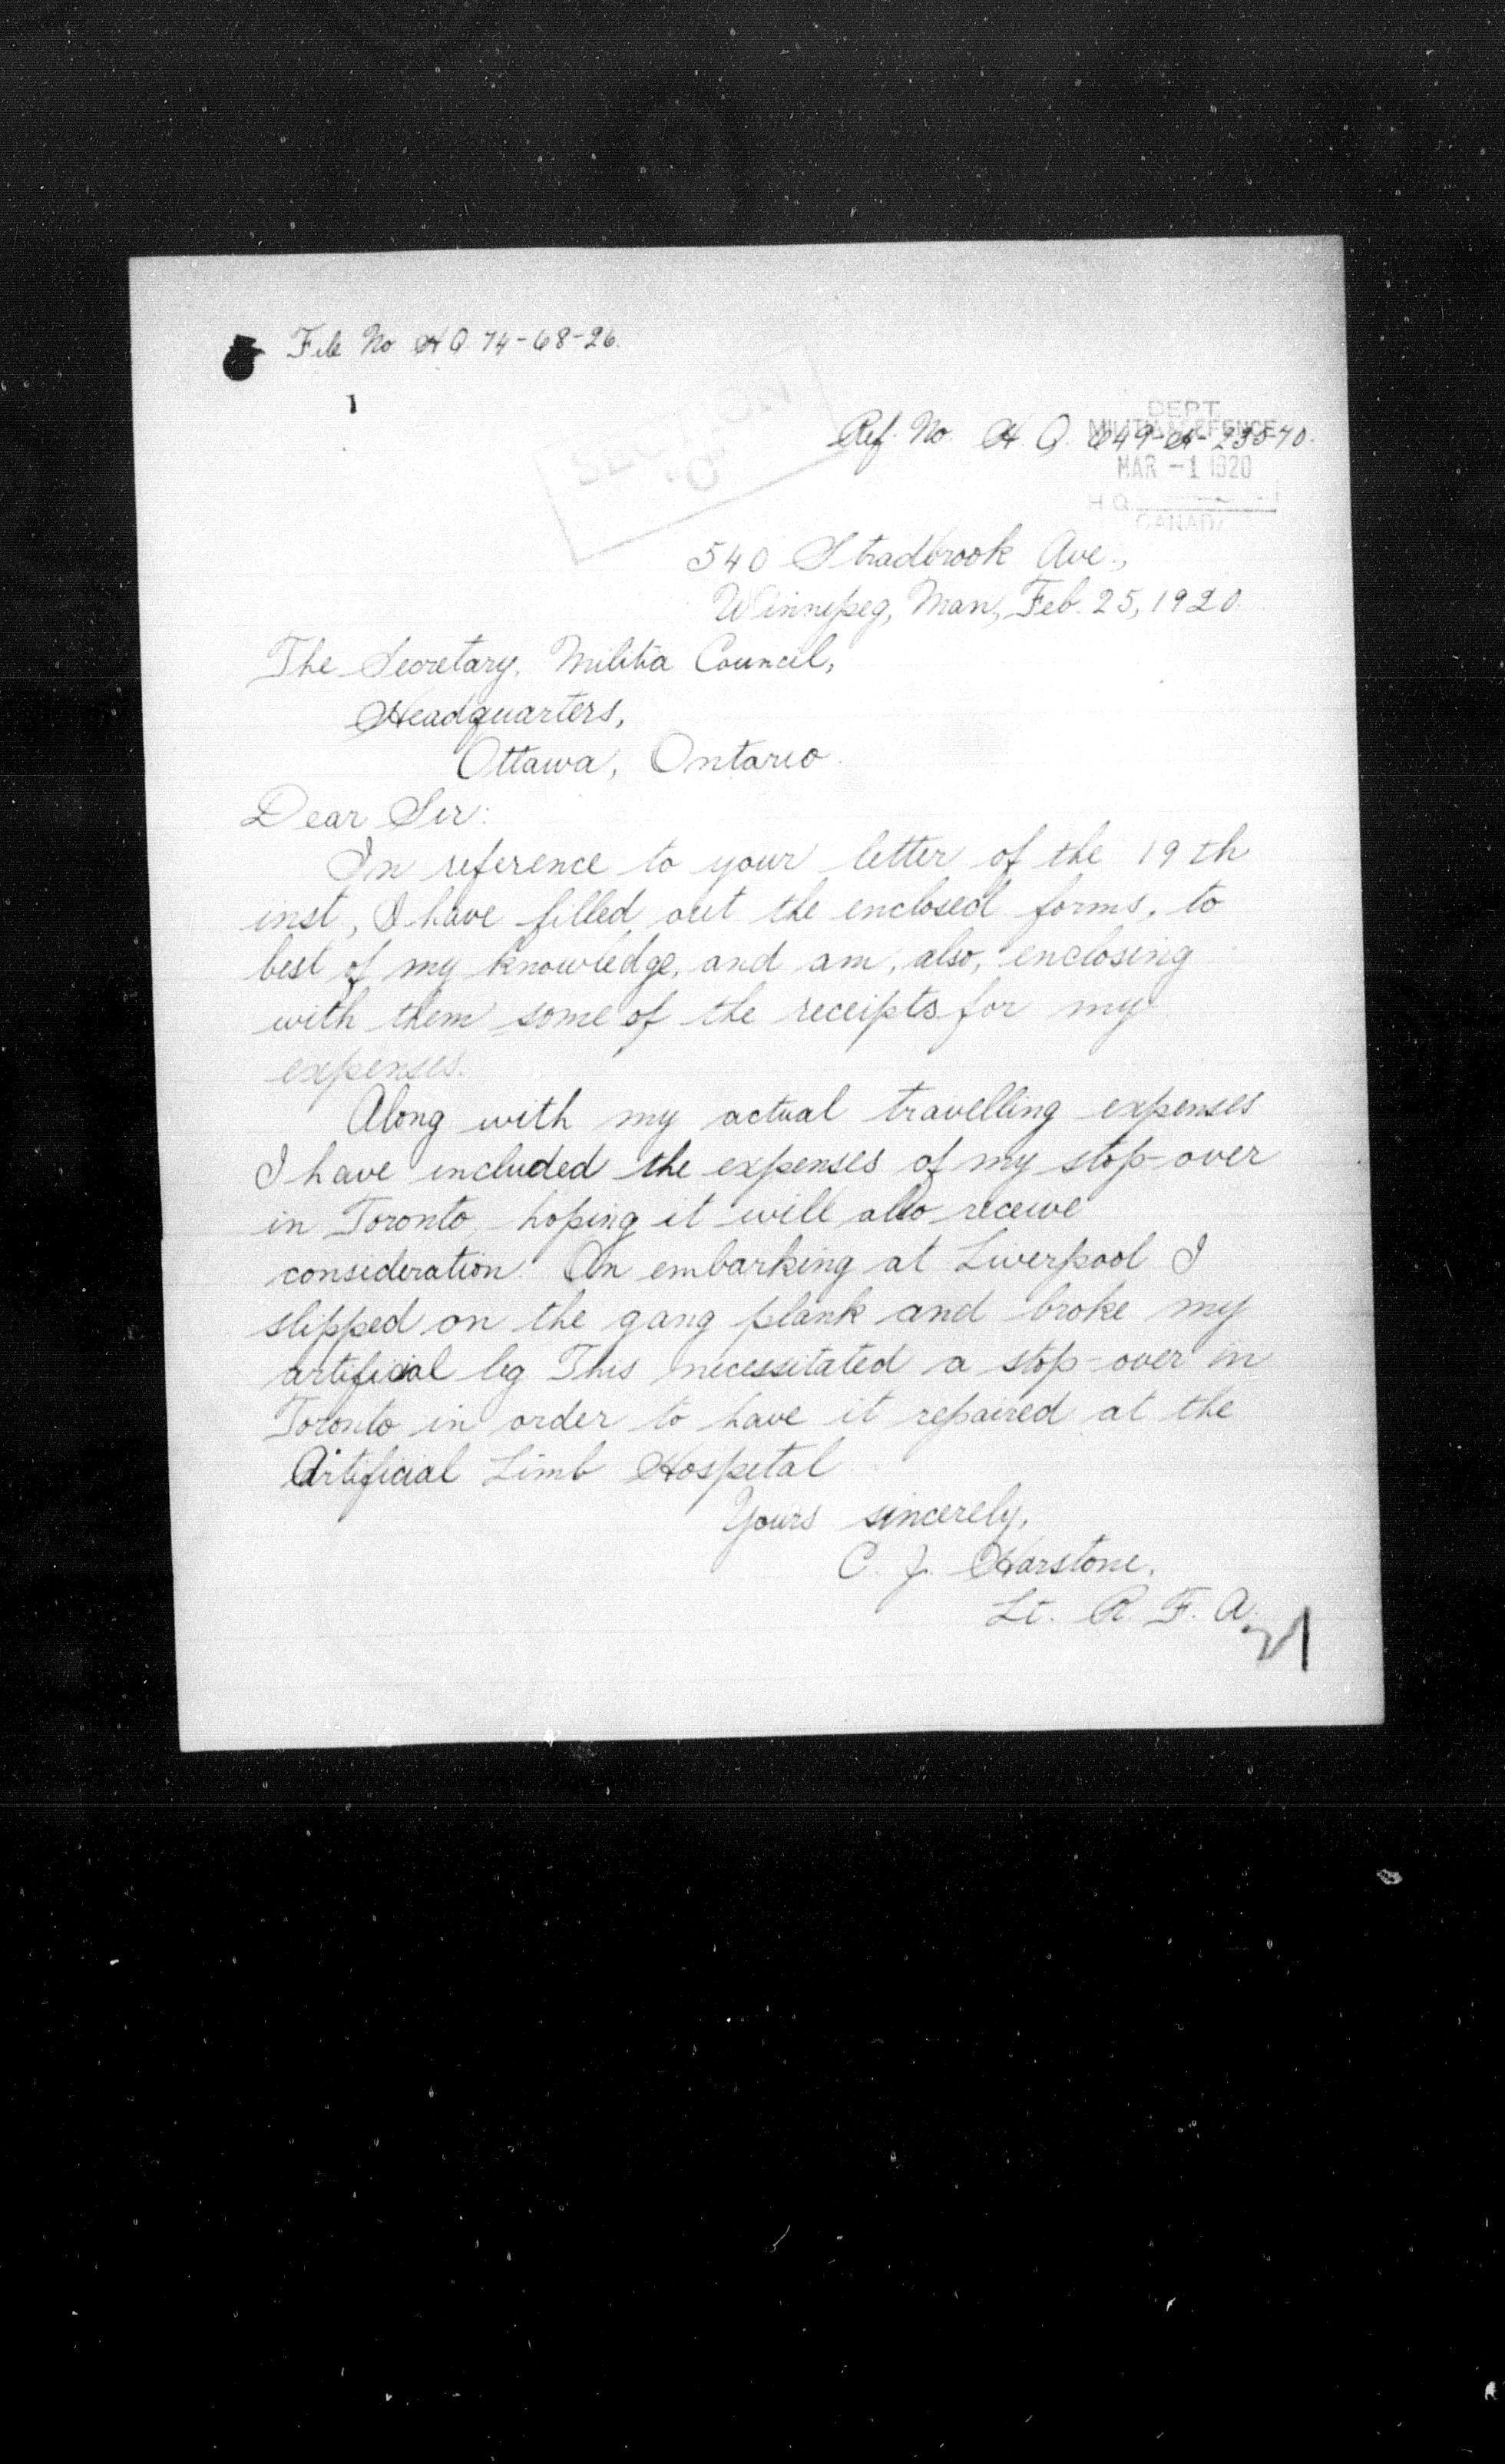 File No H Q. 74-68-26.
SECTION
"O"
DEPT.
MILITIA & DEFENCE
Ref. No. H. Q. 649-H-23570.
MAR -1 1920
H Q
CANADA
540 Stradbrook Ave.,
Winnipeg, Man, Feb. 25, 1920.
The Secretary, Militia Council,
Headquarters,
Ottawa, Ontario.
Dear Sir:
In reference to your letter of the 19th
inst, I have filled out the enclosed forms, to
best of my knowledge, and am, also, enclosing
with them some of the receipts for my
expenses.
Along with my actual travelling expenses
I have included the expenses of my stop-over
in Toronto, hoping it will also receive
consideration. On embarking at Liverpool I
slipped on the gang plank and broke my
artificial leg This necessitated a stop-over in
Toronto in order to have it repaired at the
Artificial Limb Hospital
Yours sincerely,
C. J. Harstone.
Lt. R. F. A.